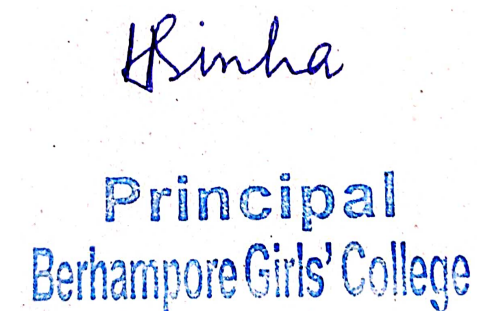 HSinha
Principal
Berhampore Girls' College